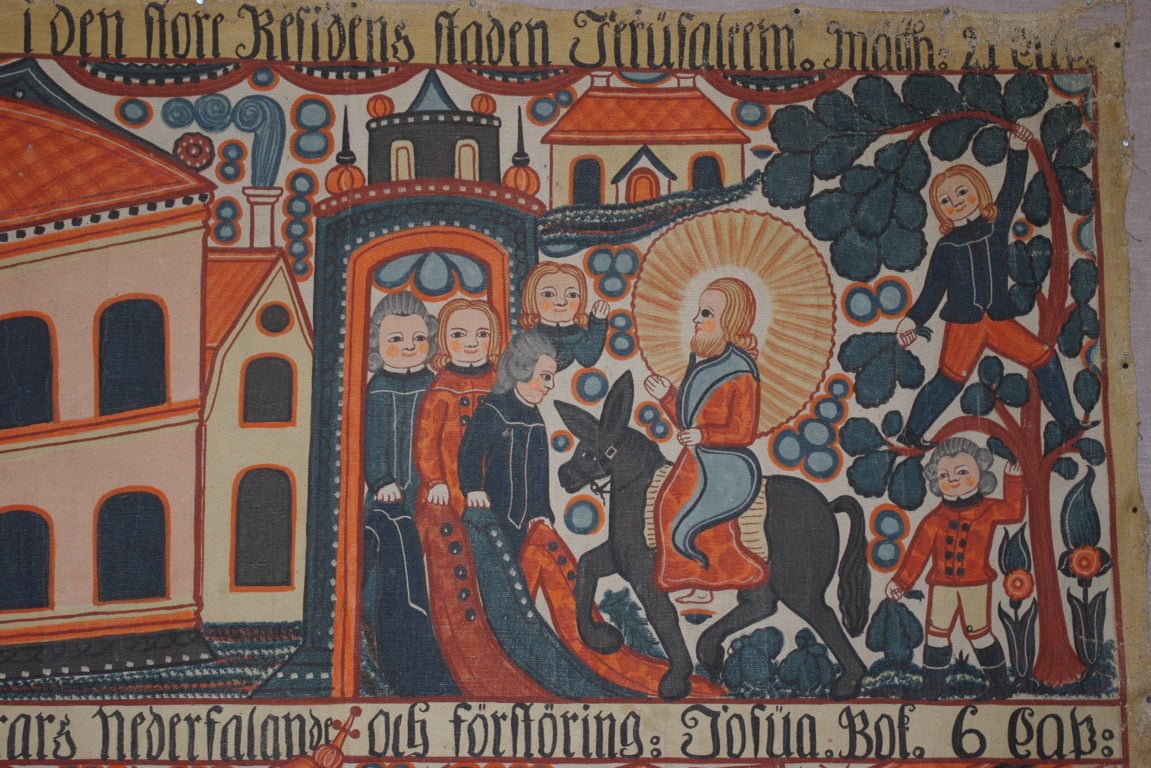 i den store Residens staden Jerüsaleem. Math: 21 Cap:
rars nederfalande och förstöring: Josüa. Bok. 6 Cap: